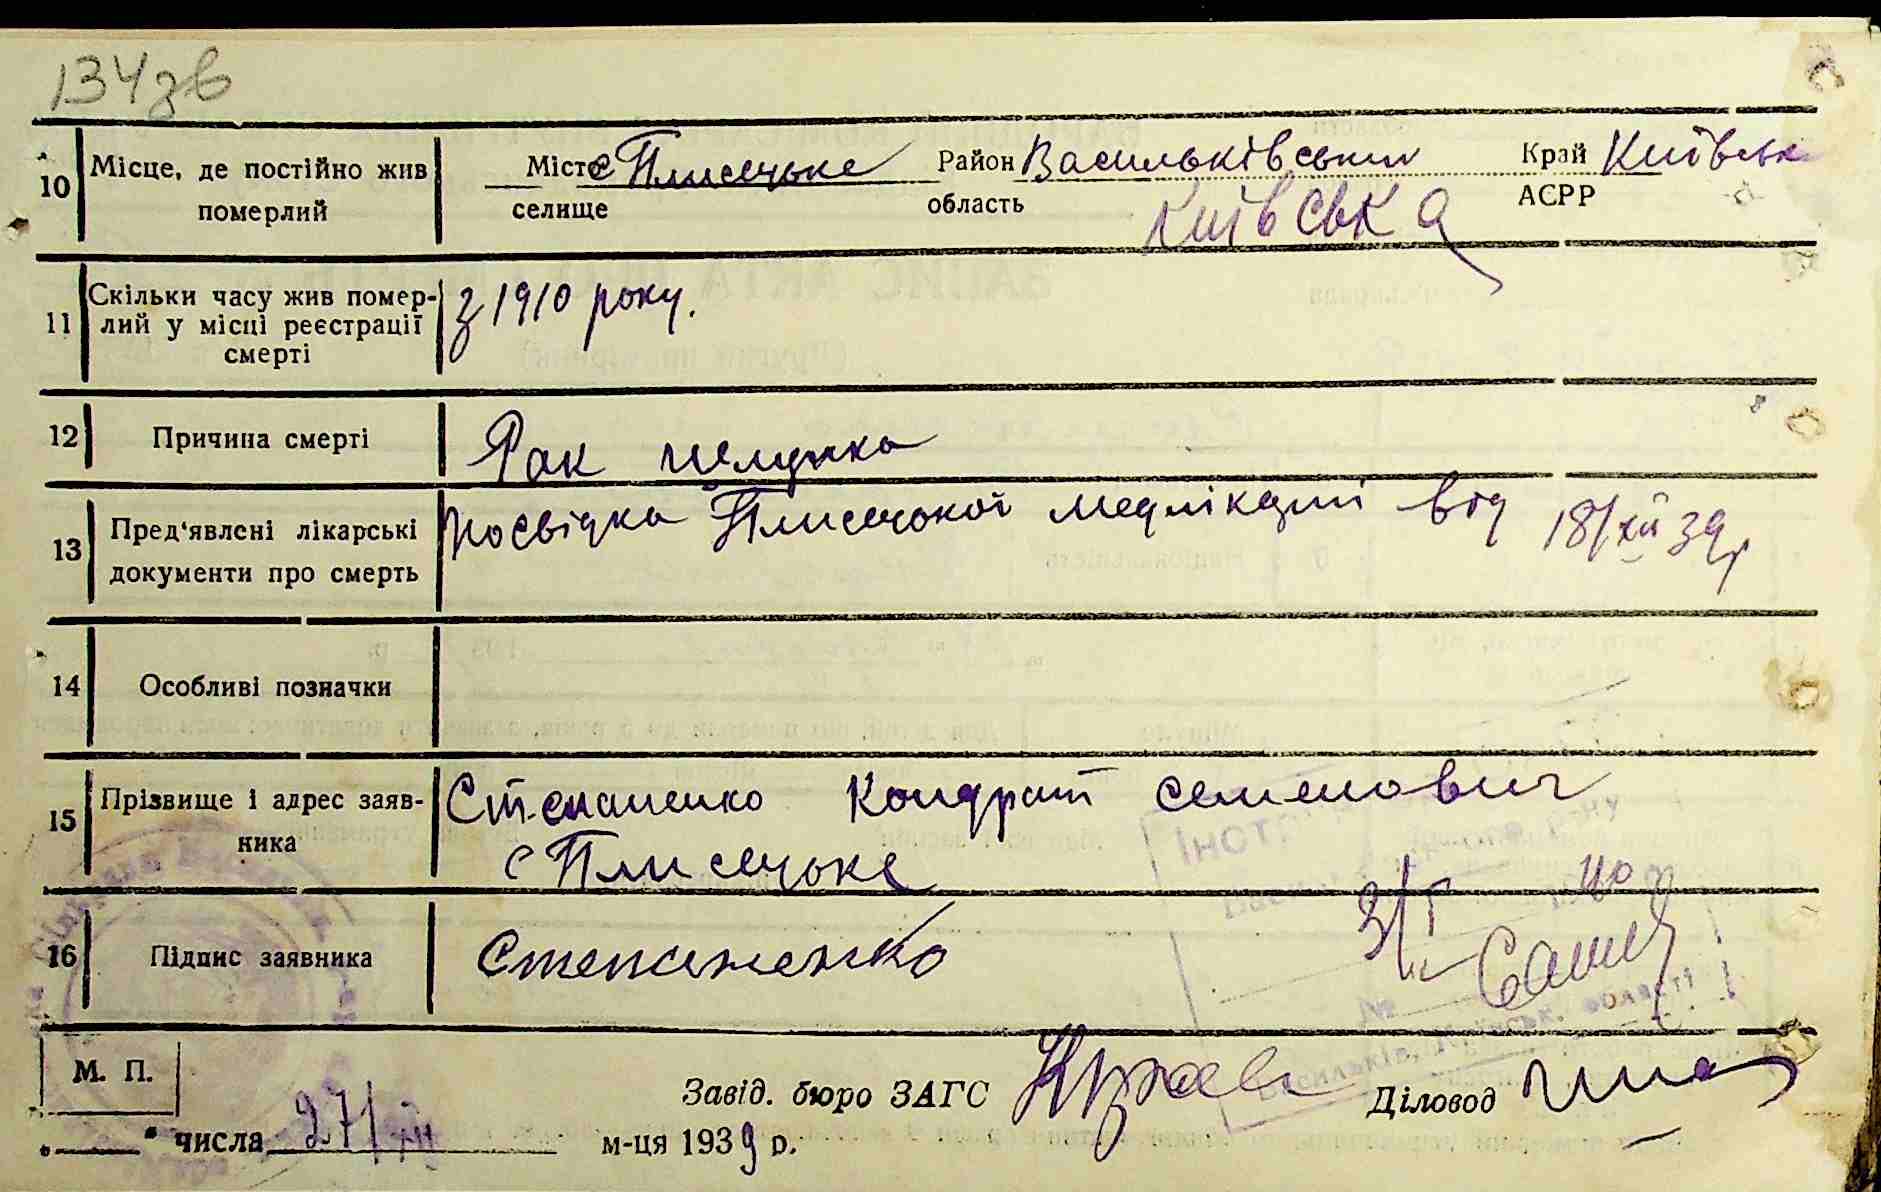 134зв
10 Місце, де постійно жив Місто с Плисецьке Район Васильківський Край Київськ
померлий селище область Київська АСРР
11 Скільки часу жив помер-
лий у місці реєстрації
смерті
з 1910 року.
12 Причина смерті Рак шлунка
13 Пред'явлені лікарські
документи про смерть
посвідка Плисецької медлікарні від 18/XII 39р
14 Особливі позначки
15 Прізвище і адрес заяв-
ника
Степаненко Кондрат Семенович
с Плисецьке
16 Підпис заявника Степаненко
3/I 40
№
Київськ. області
М. П.
Завід. бюро ЗАГС Діловод
" числа 27/XII м-ця 1939 р.